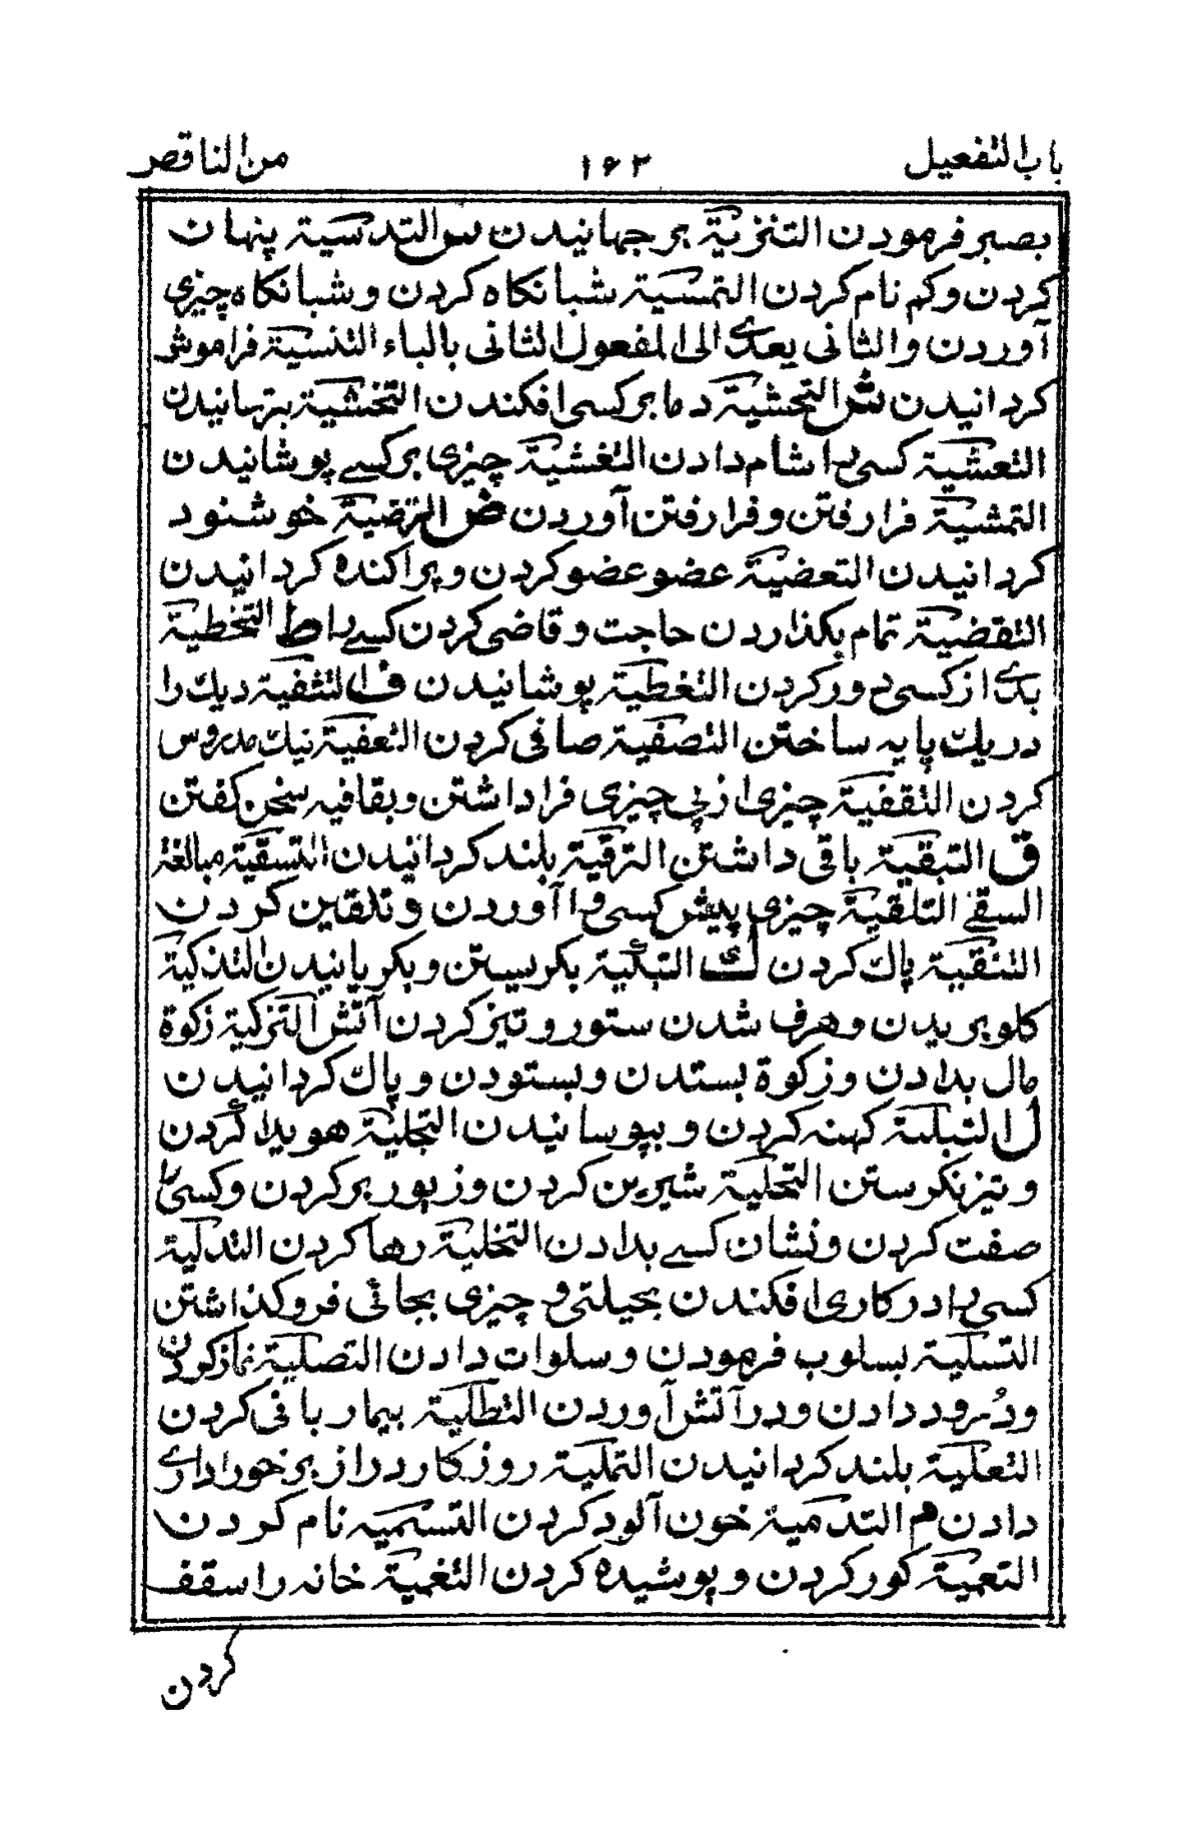 باب التفعیل ۱۶۲ من الناقص
بصبر فرمودن التنزیة بر جهانیدن س التدسیة پنهان
کردن وکم نام کردن التمسیة شبانکاه کردن و شبانکاه چیزی
آوردن والثانی یعدی الی المفعول الثانی بالباء التنسیة فراموش
کردانیدن ش التحشیة دما بر کسی افکندن التخشیة بترسانیدن
التعشیة کسی را شام دادن التغشیة چیزی بر کسے پوشانیدن
التمشیة فرا رفتن و فرا رفتن آوردن ض الترضیة خوشنود
کردانیدن التعضیة عضو عضو کردن و پراکنده کردانیدن
التقضیة تمام بکذاردن حاجت و قاضی کردن کسے را ط التخطیة
بدی از کسی دور کردن التغطیة پوشانیدن ف التثفیة دیك را
دریك پایه ساختن التصفیة صافی کردن التعفیة نیك مدروس
کردن التقفیة چیزی از پی چیزی فرا داشتن و بقافیه سخن کفتن
ق التبقیة باقی داشتن الترقیة بلند کردانیدن التسقیة مبالغة
السقے التلقیة چیزی پیش کسی وا آوردن و تلقین کردن
التنقیة پاك کردن ك التبکیة بکریستن و بکریانیدن التذکیة
کلو بریدن و هرف شدن ستور و تیز کردن آتش التزکیة زکوة
مال بدادن و زکوة بستدن و بستودن و پاك کردانیدن
ل التبلیة کهنه کردن و بپوسانیدن التجلیة هویدا کردن
و تیز نکرستن التحلیة شیرین کردن و زیور بر کردن و کسی را
صفت کردن و نشان کسے بدادن التخلیة رها کردن التدلیة
کسی را در کاری افکندن بحیلتی و چیزی بجائی فرو کذاشتن
التسلیة بسلوب فرمودن و سلوات دادن التصلیة نماز کردن
و درود دادن و در آتش آوردن التطلیة بیمار بانی کردن
التعلیة بلند کردانیدن التملیة روزکار دراز برخورداری
دادن م التدمیة خون آلود کردن التسمیه نام کردن
التعمیة کور کردن و پوشیده کردن التغمیة خانه را سقف
کردن